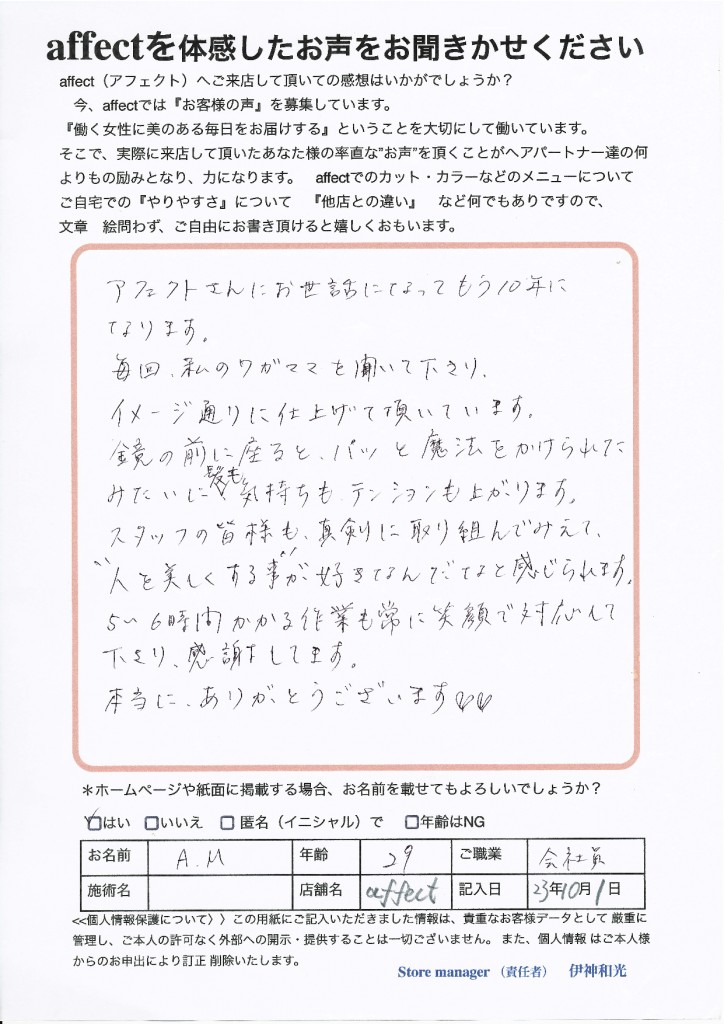 affectを体感したお声をお聞きかせください
affect（アフェクト）へご来店して頂いての感想はいかがでしょうか？
今、affectでは『お客様の声』を募集しています。
『働く女性に美のある毎日をお届けする』ということを大切にして働いています。
そこで、実際に来店して頂いたあなた様の率直な”お声”を頂くことがヘアパートナー達の何
よりもの励みとなり、力になります。 affectでのカット・カラーなどのメニューについて
ご自宅での『やりやすさ』について 『他店との違い』 など何でもありですので、
文章 絵問わず、ご自由にお書き頂けると嬉しくおもいます。
アフェクトさんにお世話になってもう10年に
なります。
毎回、私のワガママを聞いて下さり、
イメージ通りに仕上げて頂いています。
鏡の前に座ると、パッと魔法をかけられた
みたいに髪も気持ちも、テンションも上がります。
スタッフの皆様も、真剣に取り組んでみえて、
“人を美しくする事”が好きなんだなと感じられます。
5〜6時間かかる作業も常に笑顔で対応して
下さり、感謝してます。
本当に、ありがとうございます♡♡
＊ホームページや紙面に掲載する場合、お名前を載せてもよろしいでしょうか？
☑はい □いいえ □ 匿名（イニシャル）で □年齢はNG
お名前 A.M 年齢 29 ご職業 会社員
施術名 店舗名 affect 記入日 23年10月1日
<<個人情報保護について〉〉この用紙にご記入いただきました情報は、貴重なお客様データとして 厳重に
管理し、ご本人の許可なく外部への開示・提供することは一切ございません。また、個人情報 はご本人様
からのお申出により訂正 削除いたします。
Store manager （責任者） 伊神和光